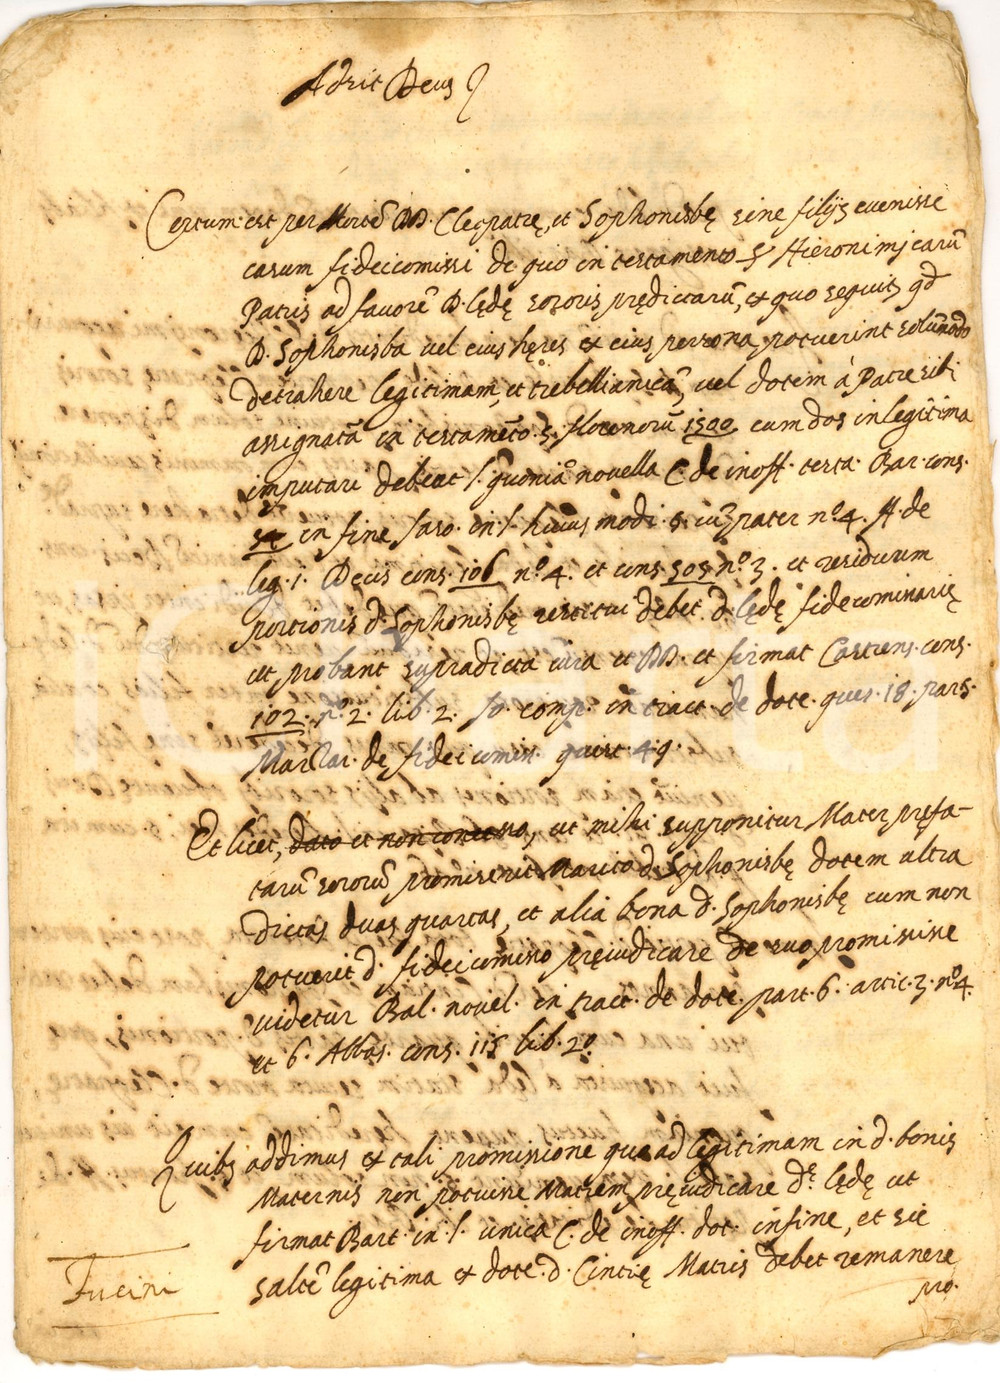 Adsit Deus
Certum est per Mortẽ DD. Cleopatrę, et Sophonisbę sine filijs evenisse
casum fideicomissi de quo in testamento Hieronimj earũ
Patris ad favorẽ D. Lędę sororis prędictarũ, et quo sequitr qd
D. Sophonisba vel eius hęres ex eius persona, potuerint solũmodo
detrahere legitimam, et trebellianicã, vel dotem à Patre sibi
assignatã in testamẽto florenorũ 1500. cum dos in legitima
imputari debeat l. quoniã novella C. de inoff. testa. Bar. cons.
in fine Iaso. in l. huius modi. §. cũ pater nº. 4. ff. de
leg. 1. Decis cons. 106 nº 4. et cons. 505 nº 3. et residuum
portionis d. Sophonisbę restitui debet d. Lędę fidecominarię
ut probant supradicta iura et DD. et firmat Castrens. cons.
102. nº 2. lib. 2. comp. in tract. de dote ques. 18. pars.
de fideicomiss. quest. 49.
Et licet, dato et non concesso, ut mihi supponitur Mater prefa-
tarũ sororũ promiserit Marito d. Sophonisbę dotem ultra
dictas duas quartas, et alia bona d. Sophonisbę cum non
potuerit d. fideicomisso pręiudicare de suo promisisse
videtur Bal. novel. in tract. de dote part. 6. artic. 3. nº. 4.
et 6. Abbas. cons. 115 lib. 2º.
Quibs addimus ex tali promissione quo ad legitimam in d. bonis
Maternis non potuisse Matrem pręiudicare De Lędę ut
firmat Bart. in l. unica C. de inoff. dot. in fine, et sic
saltẽ legitima ex dote d. Cintię Matris debet remanere
pro.
Fucini